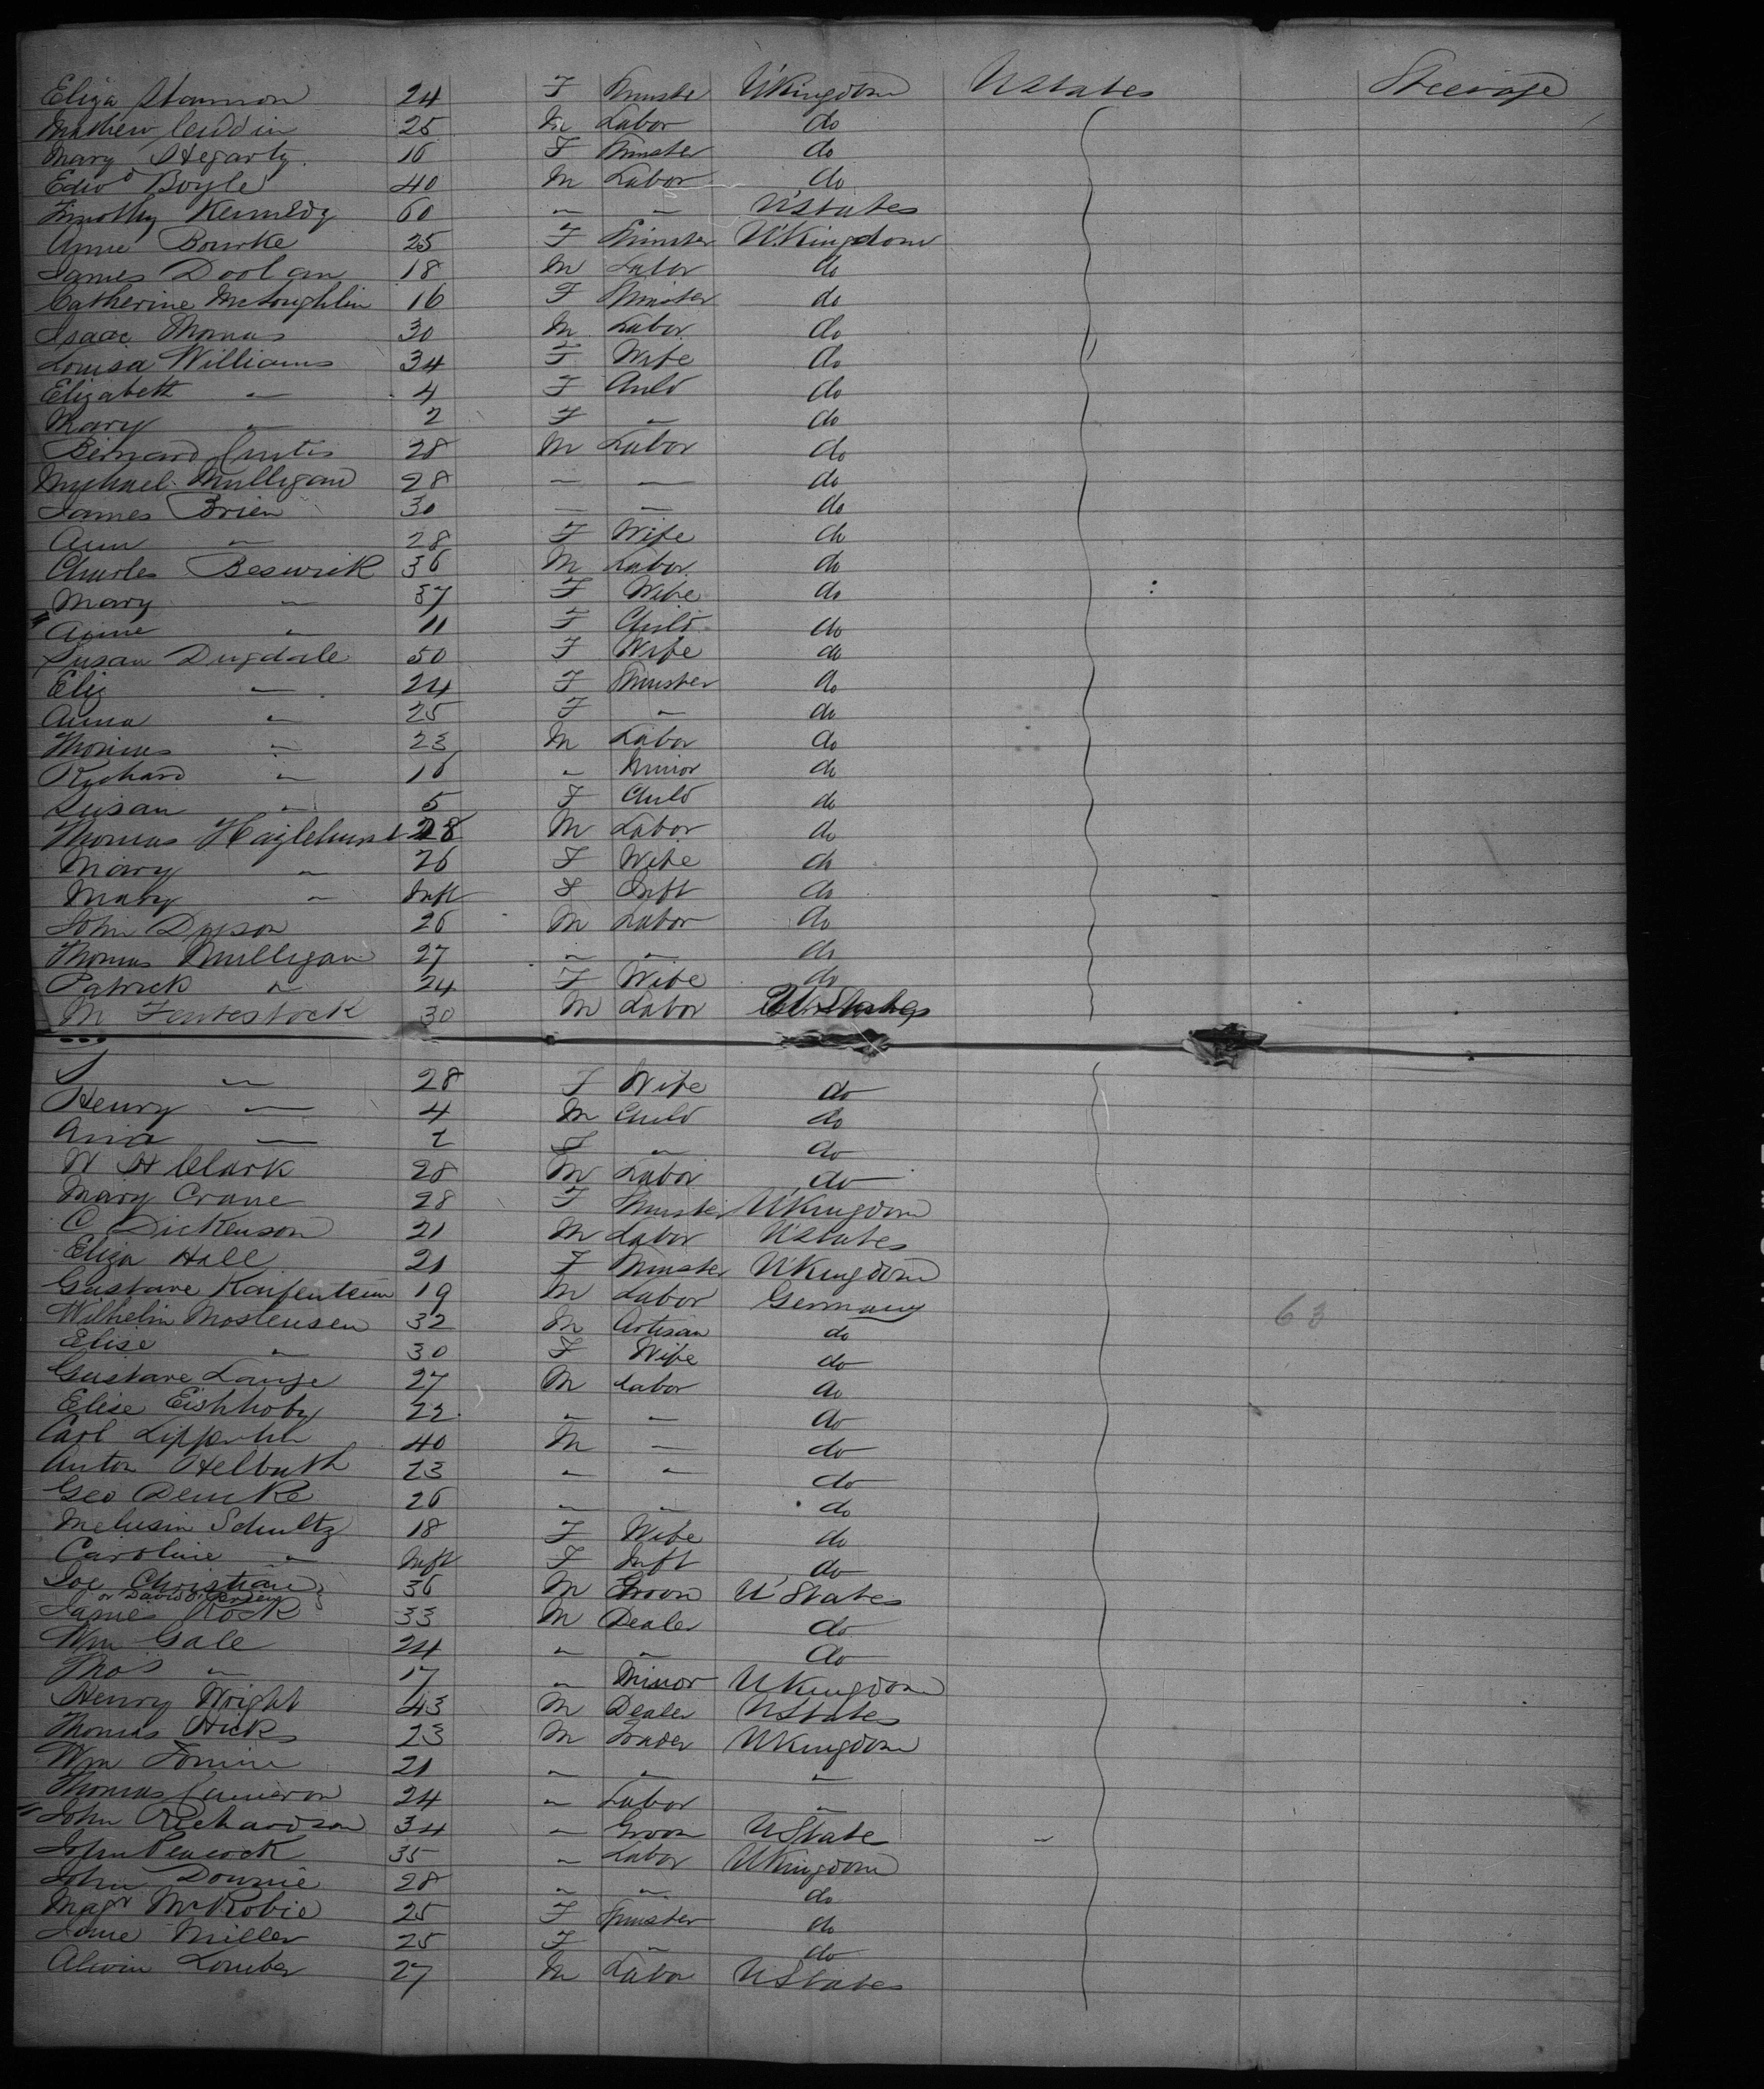 Eliza Shannon 24 F Spinster U'Kingdom UStates Steerage
Mathew 25 M Labor do
Mary Hegarty 16 F Spinster do
Edwd Boyle 40 M Labor do
Timothy Kennedy 60 " " U'States
Anne Bourke 25 F Spinster U'Kingdom
James Doolan 18 M Labor do
Catherine McLoughlin 16 F Spinster do
Isaac Thomas 30 M Labor do
Louisa Williams 34 F Wife do
Elizabeth " 4 F Child do
Mary " 2 F " do
Bernard Curtis 28 M Labor do
Michael Mulligan 28 " " do
James Brien 30 " " do
Ann " 28 F Wife do
Charles Beswick 36 M Labor do
Mary " 37 F Wife do
Anne " 11 F Child do
Susan Dugdale 50 F Wife do
Eliz " 24 F Spinster do
Anna " 25 F " do
Thomas " 23 M Labor do
Richard " 16 " Minor do
Susan " 5 F Child do
Thomas Hazlehurst 28 M Labor do
Mary " 26 F Wife do
Mary " Inft F Inft do
John Dyson 26 M Labor do
Thomas Mulligan 27 " " do
Patrick " 24 F Wife do
M 30 M Labor U States
S " 28 F Wife do
Henry " 4 M Child do
Ana " 2 F " do
W H Clark 28 M Labor do
Mary Crane 28 F Spinster U'Kingdom
C Dickenson 21 M Labor U'States
Eliza Hall 21 F Spinster U'Kingdom
Gustave 19 M Labor Germany
Wilhelm Mostensen 32 M Artisan do 63
Elise " 30 F Wife do
Gustave Lange 27 M Labor do
Elise 22 " " do
Carl 40 M " do
Anton Helbuth 23 " " do
Geo Demke 26 " " do
Melusin Schultz 18 F Wife do
Caroline " Inft F Inft do
Joe Christian 36 M Groom U'States
or David
James Rock 33 M Dealer do
Wm Gale 24 " " do
Thos " 17 " Minor UKingdom
Henry Wright 43 M Dealer UStates
Thomas Hicks 23 M Trader UKingdom
Wm 21 " " "
Thomas Cameron 24 " Labor "
John Richardson 34 " Groom UState "
John Peacock 35 " Labor UKingdom
John Downie 28 " " do
Magt McRobie 25 F Spinster do
Jane Miller 25 F " do
Alwin Lomber 27 M Labor UStates